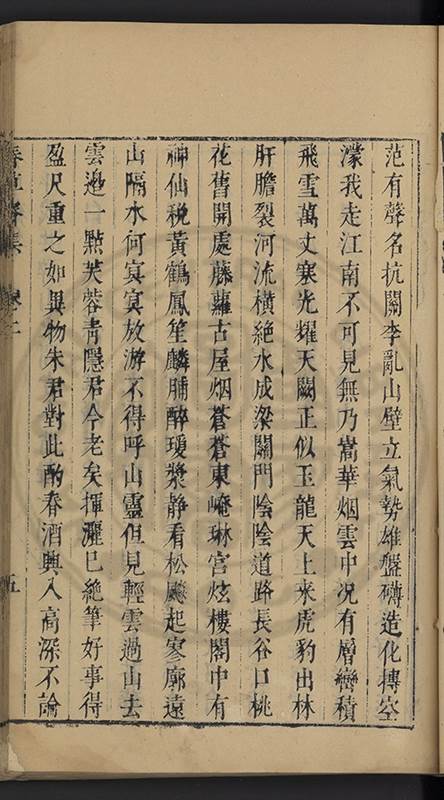 范有聲名抗關李亂山壁立氣勢雄盤礴造化摶空
濛我走江南不可見無乃嵩華烟雲中况有層巒積
飛雪萬丈寒光耀天闕正似玉龍天上來虎豹出林
肝膽裂河流橫絕水成梁關門陰陰道路長谷口桃
花舊開處藤蘿古屋烟蒼蒼東崦琳宮炫樓閣中有
神仙稅黃鶴鳳笙麟脯醉瓊漿靜看松飈起寥廓遠
山隔水何冥冥放游不得呼山靈但見輕雲過山去
雲邊一點芙蓉青隱君今老矣揮灑已絕筆好事得
盈尺重之如異物朱君對此酌春酒興入高深不論
卷二
五